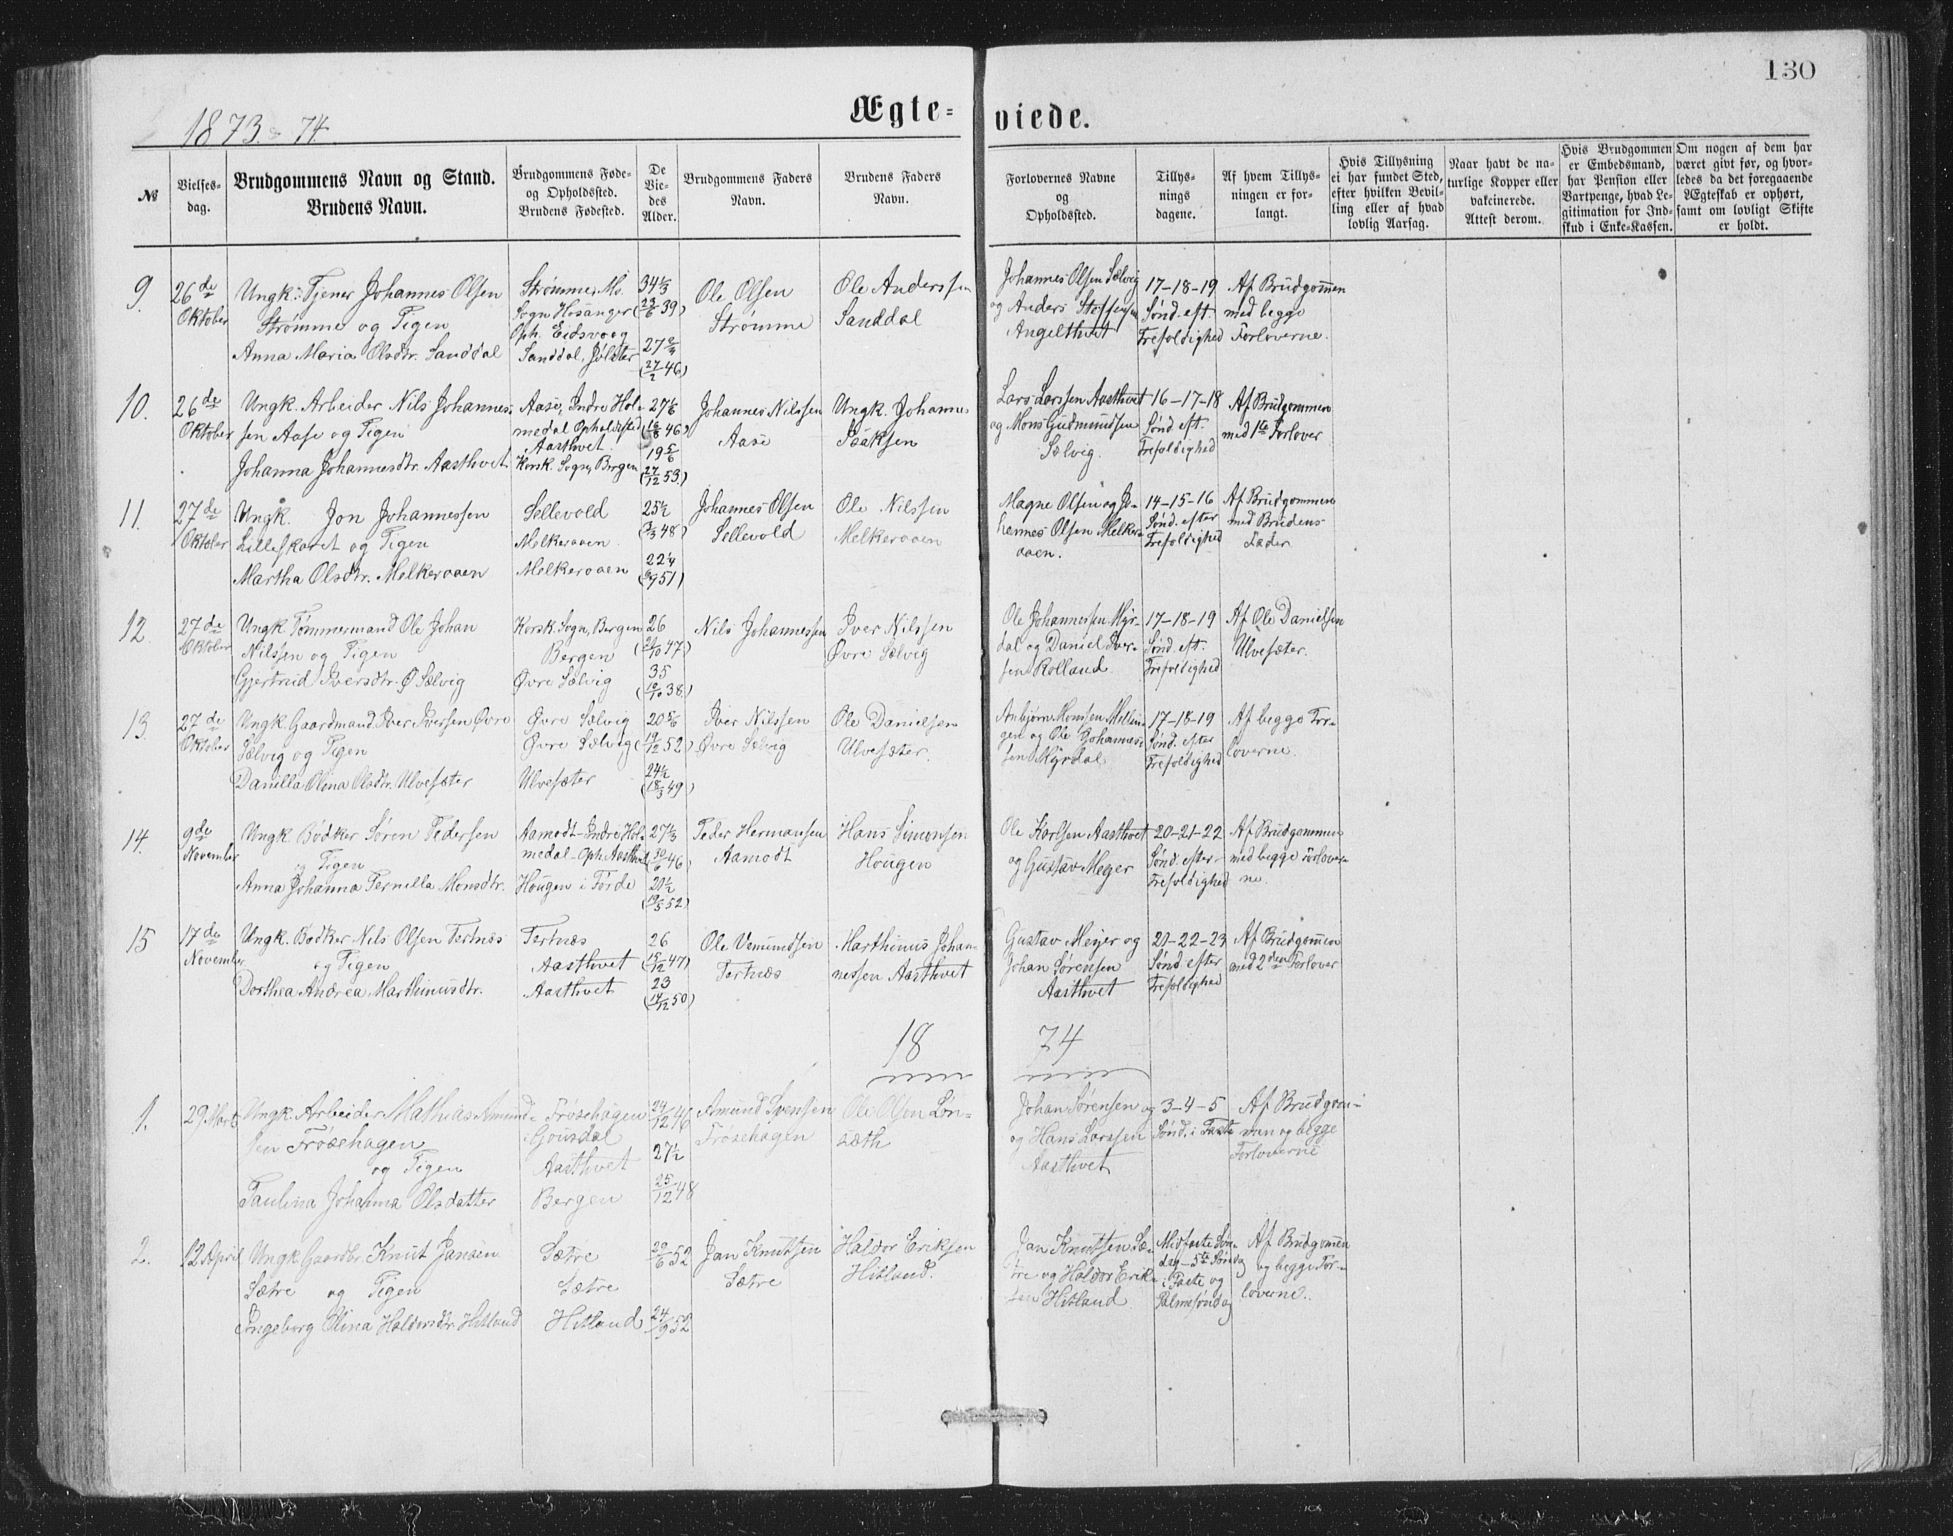 130
Ægte-viede.
1873 & 74.
№
Vielses-dag.
Brudgommens Navn og Stand.
Brudens Navn.
Brudgommens Føde-
og Opholdssted.
Brudens Fødested.
De
Vie-
des
Alder.
Brudgommens Faders
Navn.
Brudens Faders
Navn.
Forlovernes Navne
og
Opholdssted.
Tillys-
nings
dagene.
Af hvem Tillys-
ningen er for-
langt.
Hvis Tillysning
ei har fundet Sted,
efter hvilken Bevil-
ling eller af hvad
lovlig Aarsag.
Naar havt de na-
turlige Kopper eller
vakcinerede.
Attest derom.
Hvis Brudgommen
er Embedsmand,
har Pension eller
Vartpenge, hvad Le-
gitimation for Ind-
skud i Enke-Kassen.
Om nogen af dem har
været givt før, og hvor-
ledes da det foregaaende
Ægteskab er ophørt,
samt om lovligt Skifte
er holdt.
9. 26de Oktober
Ungk. Tjener Johannes Olsen
Strømme og Pigen
Anna Maria Olsdtr. Sanddal
Strømme, Mo.
Sogn Hosanger
Oph. Eidsvaag
Sanddal, Jølster
34 1/3
(23/6 39)
27 2/3
(27/2 46)
Ole Olsen
Strømme
Ole Anderssen
Sanddal
Johannes Olsen Sælvig
og Anders Steffensen
Angelthvet
17-18-19
Sønd. eft.
Trefoldighed
Af Brudgommen
med begge
Forloverne.
10. 26de Oktober
Ungk. Arbeider Nils Johannes-
sen Aase og Pigen
Johanna Johannesdtr. Aasthvet
Aase, Indre Hol-
medal Opholdssted
Aasthvet
Korsk. Sogn, Bergen
27 1/6
(16/8 46)
19 5/6
(27/12 53.)
Johannes Nilssen
Aase
Ungk. Johannes
Isaksen
Lars Larssen Aasthvet
og Mons Gudmundsen
Sælvig.
16-17-18
Sønd eft.
Trefoldighed
Af Brudgommen
med 1ste Forlover
11. 27de Oktober
Ungk. Jon Johannessen
Lilleskaret og Pigen
Martha Olsdtr. Melkeraaen
Sellevold
Melkeraaen
Melkeraaen
25 1/2
(3/3 48)
22 1/4
(6/9 51)
Johannes Olsen
Sellevold
Ole Nilssen
Melkeraaen
Magne Olsen og Jo-
hannes Olsen Melker-
aaen.
14-15-16
Sønd. efter
Trefoldighed
Af Brudgommen
med Brudens
Fader
12. 27de Oktober
Ungk Tømmermand Ole Johan
Nilssen og Pigen
Gjertrud Iversdtr. Ø Sælvig
Korsk. Sogn, Bergen
Bergen
Øvre Sælvig
26
(21/10 47)
35
(19/10 38.)
Nils Johannessen
Iver Nilssen
Øvre Sælvig
Ole Johannessen Myr-
dal og Daniel Iver-
sen Rolland
17-18-19
Sønd. eft.
Trefoldighed
Af Ole Danielsen
Ulvesæter.
13. 27de Oktober
Ungk. Gaardmand Iver Iversen Øvre
Sælvig og Pigen
Danilla Olina Olsdtr. Ulvesæter
Øvre Sælvig
Øvre Sælvig
Ulvesæter
20 5/6
(19/12 52)
24 1/2
(18/3 49)
Iver Nilssen
Øvre Sælvig
Ole Danielsen
Ulvesæter.
Anbjørn Monssen Mellin-
gen og Ole Johannes-
sen Myrdal
17-18-19
Sønd. efter
Trefoldighed
Af begge For-
loverne.
14. 9de November
Ungk Bødker Søren Pedersen
og Pigen
Anna Johanna Pernilla Monsdtr.
Aamodt-Indre Hol-
medal-Oph. Aasthvet
Hougen i Førde
27 1/3
21 1/2
(19/5 52)
Peder Hermansen
Aamodt
Hans Simonsen
Hougen
Ole Karlsen Aasthvet
og Gustav Meyer
20-21-22
Sønd. efter
Trefoldighed
Af Brudgommen
med begge Forlover-
ne.
15 17de November
Ungk. Bødker Nils Olsen Tertnæs
og Pigen
Dorthea Andrea Marthinusdtr.
Tertnæs
Aasthvet
Aasthvet
26
(15/12 47)
23
(14/12 50)
Ole Vemundsen
Tertnæs
Marthinus Johan-
nessen Aasthvet
Gustav Meyer og
Johan Sørensen
Aasthvet
21-22-23
Sønd efter
Trefoldighed
Af Brudgommen
med 2den Forlover
18 74
1. 29 Marts
Ungk. Arbeider Mathias Amund-
sen Frøsehagen
og Pigen
Paulina Johanna Olsdatter
Frøsehagen
Gousdal
Aasthvet
Bergen
24/12 46
27 1/2
25/12 48
Amund Svensen
Frøsehagen
Ole Olsen Løn-
sæth
Johan Sørensen og
og Hans Larssen
Aasthvet
3-4-5
Sønd. i Faste
Af Brudgom-
men og begge
Forloverne
2. 12 April
Ungk Gaardbr. Knut Jansen
Sætre og Pigen
Ingeborg Olina Haldorsdtr. Hitland
Sætre
Sætre
Hitland
29/6 52
24/9 52
Jan Knutsen
Sætre
Haldor Eriksen
Hitland.
Jan Knutsen Sæ-
tre og Haldor Erik-
sen Hitland.
Midfaste Søn-
dag-5te Søndag
i Faste og
Palmesøndag
Af Brudgommen
og begge For-
loverne.